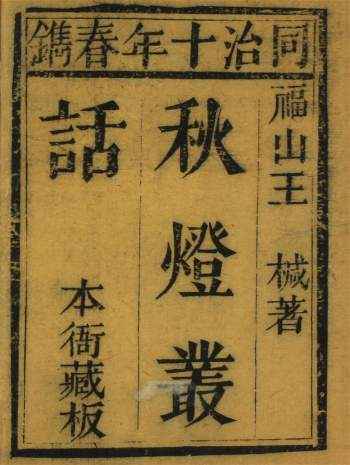 同治十年春鐫
福山王 椷著
秋燈叢
話
本衙藏板